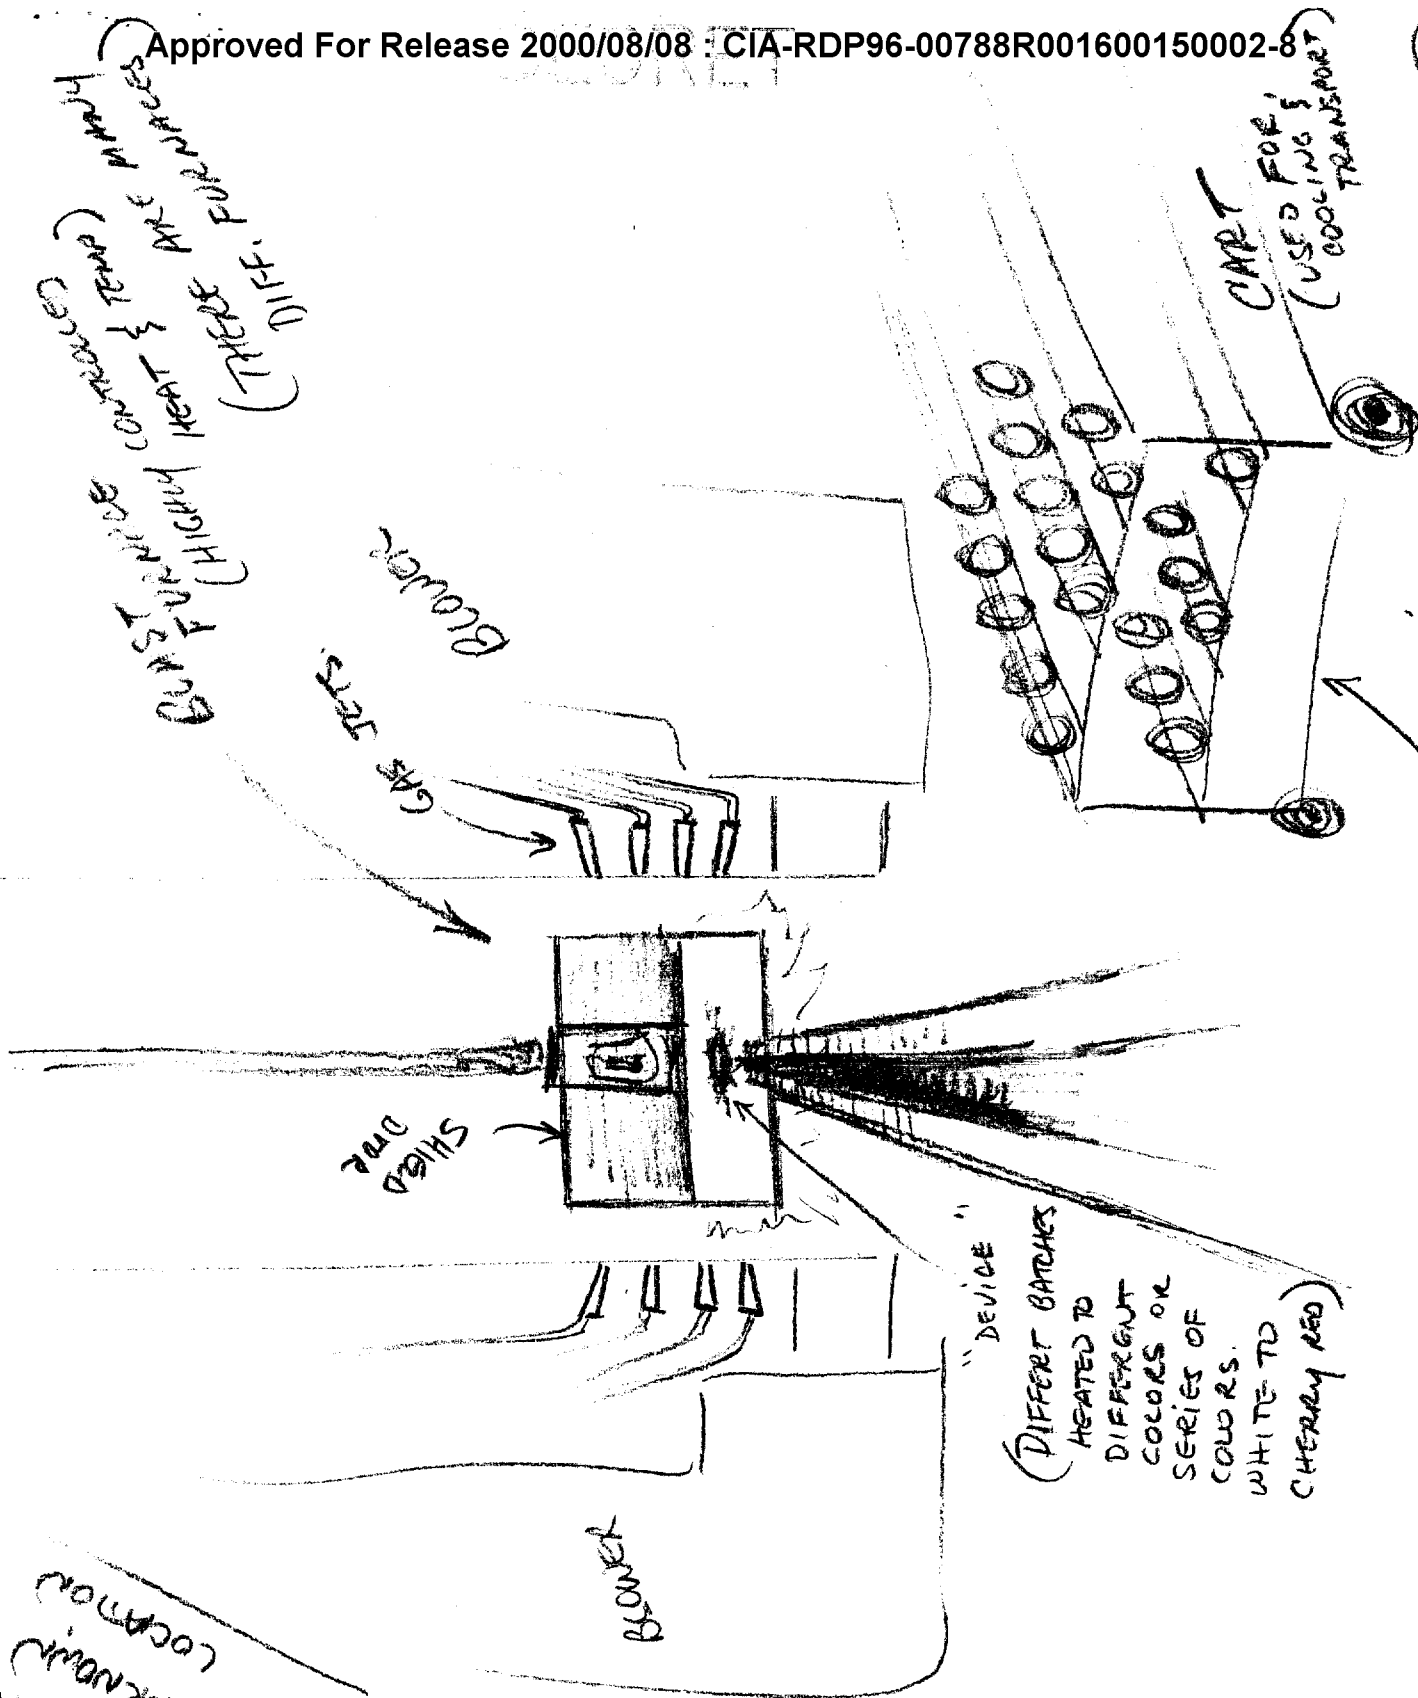 Approved For Release 2000/08/08 : CIA-RDP96-00788R001600150002-8
SECRET
BLAST
FURNACE
(HIGHLY CONTROLLED
HEAT & TEMP)
(THERE ARE MANY
DIFF. FURNACES)
GAS JETS.
BLOWER
CART
(USED FOR;
COOLING &
TRANSPORT)
SHIELD
DOOR
"DEVICE"
(DIFFERT BATCHES
HEATED TO
DIFFERENT
COLORS OR
SERIES OF
COLORS.
WHITE TO
CHERRY RED)
BLOWER
LOCATION